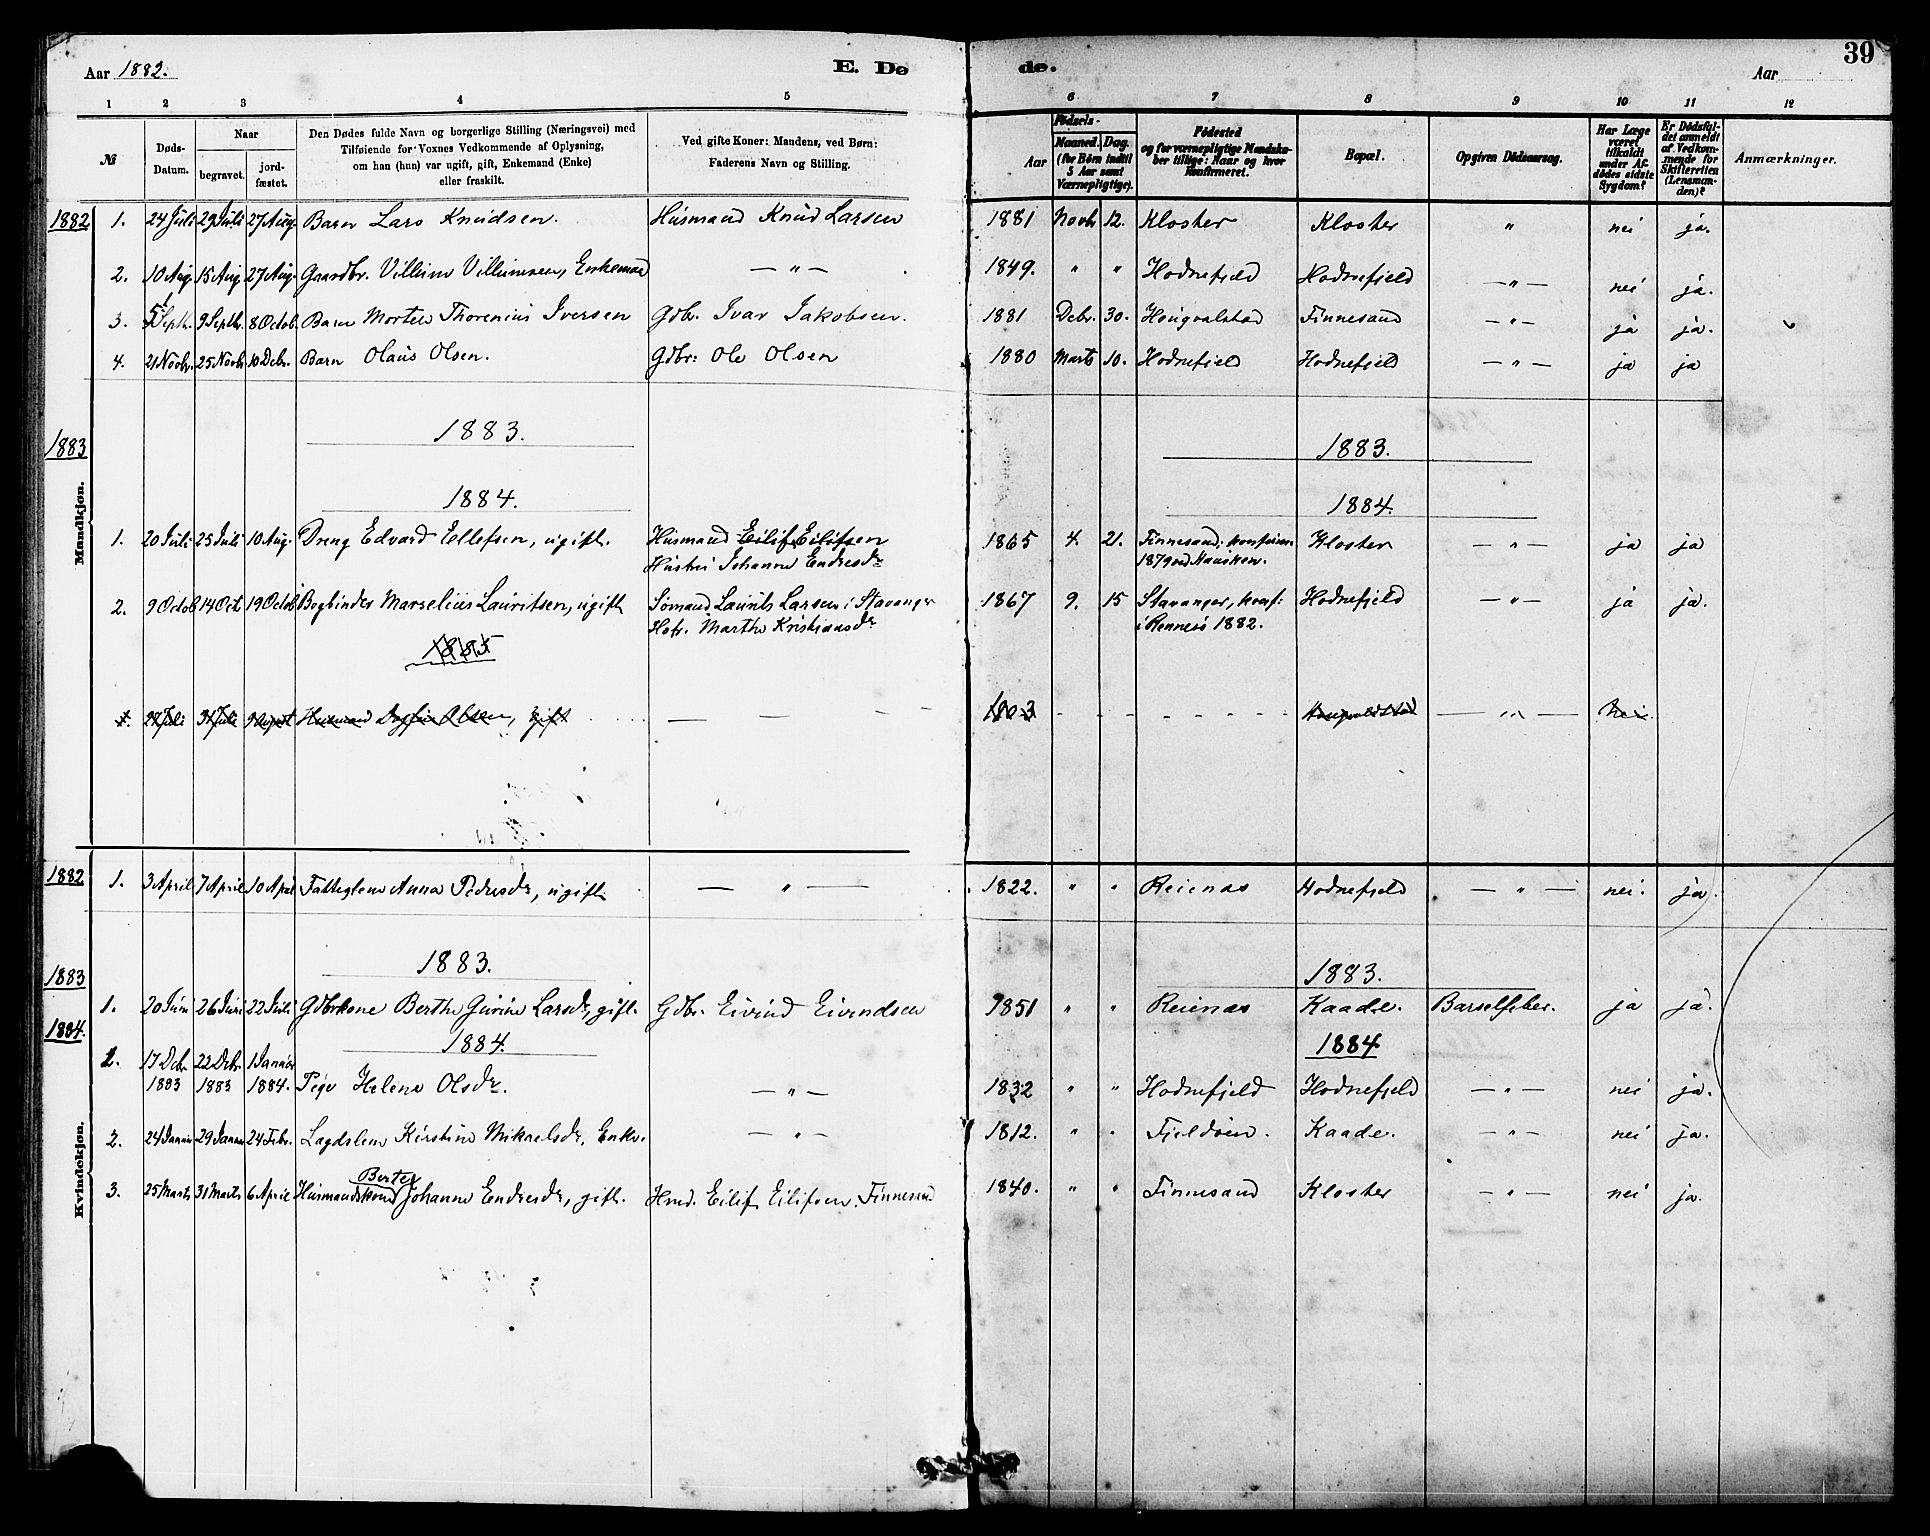 39
Aar 1882. E. Døde. Aar
1 2 3 4 5 6 7 8 9 10 11 12
№ Døds-Datum. Naar begravet. jordfæstet. Den Dødes fulde Navn og borgerlige Stilling (Næringsvei) med Tilføiende for Voxnes Vedkommende af Oplysning, om han (hun) var ugift, gift, Enkemand (Enke) eller fraskilt. Ved gifte Koner: Mandens, ved Børn: Faderens Navn og Stilling. Fødsels- Aar Maaned. Dag. (for Børn indtil 5 Aar samt Værnepligtige). Fødested og for værnepligtige Mandskaber tillige: Naar og hvor konfirmeret. Bopæl. Opgiven Dødsaarsag. Har Læge været tilkaldt under Afdødes sidste Sygdom? Er Dødsfaldet anmeldt af Vedkommende for Skifteretten (Lensmanden)? Anmærkninger.
Mandkjøn.
1882 1. 24 Juli 29 Juli 27 Aug. Barn Lars Knudsen. Husmand Knud Larsen 1881 Novbr 12. Kloster Kloster " nei ja.
2. 10 Aug 15 Aug 27 Aug. Gaardbr. Villum Villumsen, Enkemand — " — 1849. " " Hodnefjeld Hodnefjeld — " — nei ja.
3. 5 Septb. 9 Septb. 8 Octob. Barn Morten Thorenius Iversen Gdbr. Ivar Jakobsen. 1881 Debr. 30. Hougvalstad Finnesand — " — ja ja.
4. 21 Novbr. 25 Novbr 10 Debr. Barn Olaus Olsen. Gdbr: Ole Olsen 1880 Marts 10. Hodnefjeld Hodnefjeld — " — ja ja
1883 1883. 1883.
1884. 1884.
1. 20 Juli 25 Juli 10 Aug. Dreng Edvard Ellefsen, ugift. Husmand Eilif Eilifsen 1865 4. 21. Finnesand, Kloster — " — ja ja
Hustru Johanne Endresdr 1879
2. 9 Octob 14 Oct 19 Octob Bogbinder Marselius Lauritsen, ugift Sømand Laurits Larsen i Stavanger 1867 9. 15 Stavanger, konf: Hodnefjeld — " — ja ja.
Marthe Kristiansdr i Rennesø 1882.
1885
1. 27 Juli 31 Juli 9 August Husmand Olsen, gift — — — — " — Nei
Kvindekjøn.
1882 1. 3 April 7 April 10 April Fattiglem Anna Pedersdr, ugift — " — 1822. " " Reienas Hodnefjeld — " — nei. ja.
1883 1883. 1883.
1. 20 Juni 26 Juni 22 Juli Gdbrkone Berthe Gurine Larsdr, gift. Gdbr. Eivind Eivindsen 1851 " " Reienas Kaade. Barselfeber. ja ja.
1884. 1884. 1884
1. 17 Debr 1883 22 Debr 1883 1 Januar 1884. Pige Helene Olsdr. — " — 1832 " " Hodnefjeld Hodnefjeld — " — nei ja.
2. 24 Januar 29 Januar 24 Febr. Lægdslem Kirstine Mikaelsdr, Enke. — " — 1812. " " Fjeldøen. Kaade. — " — nei ja.
Berte
3. 25 Marts 31 Marts 6 April Husmandskone Johanne Endresdr, gift. Hmd. Eilif Eilifsen, Finnesand 1840. " " Finnesand Kloster — " — nei ja.